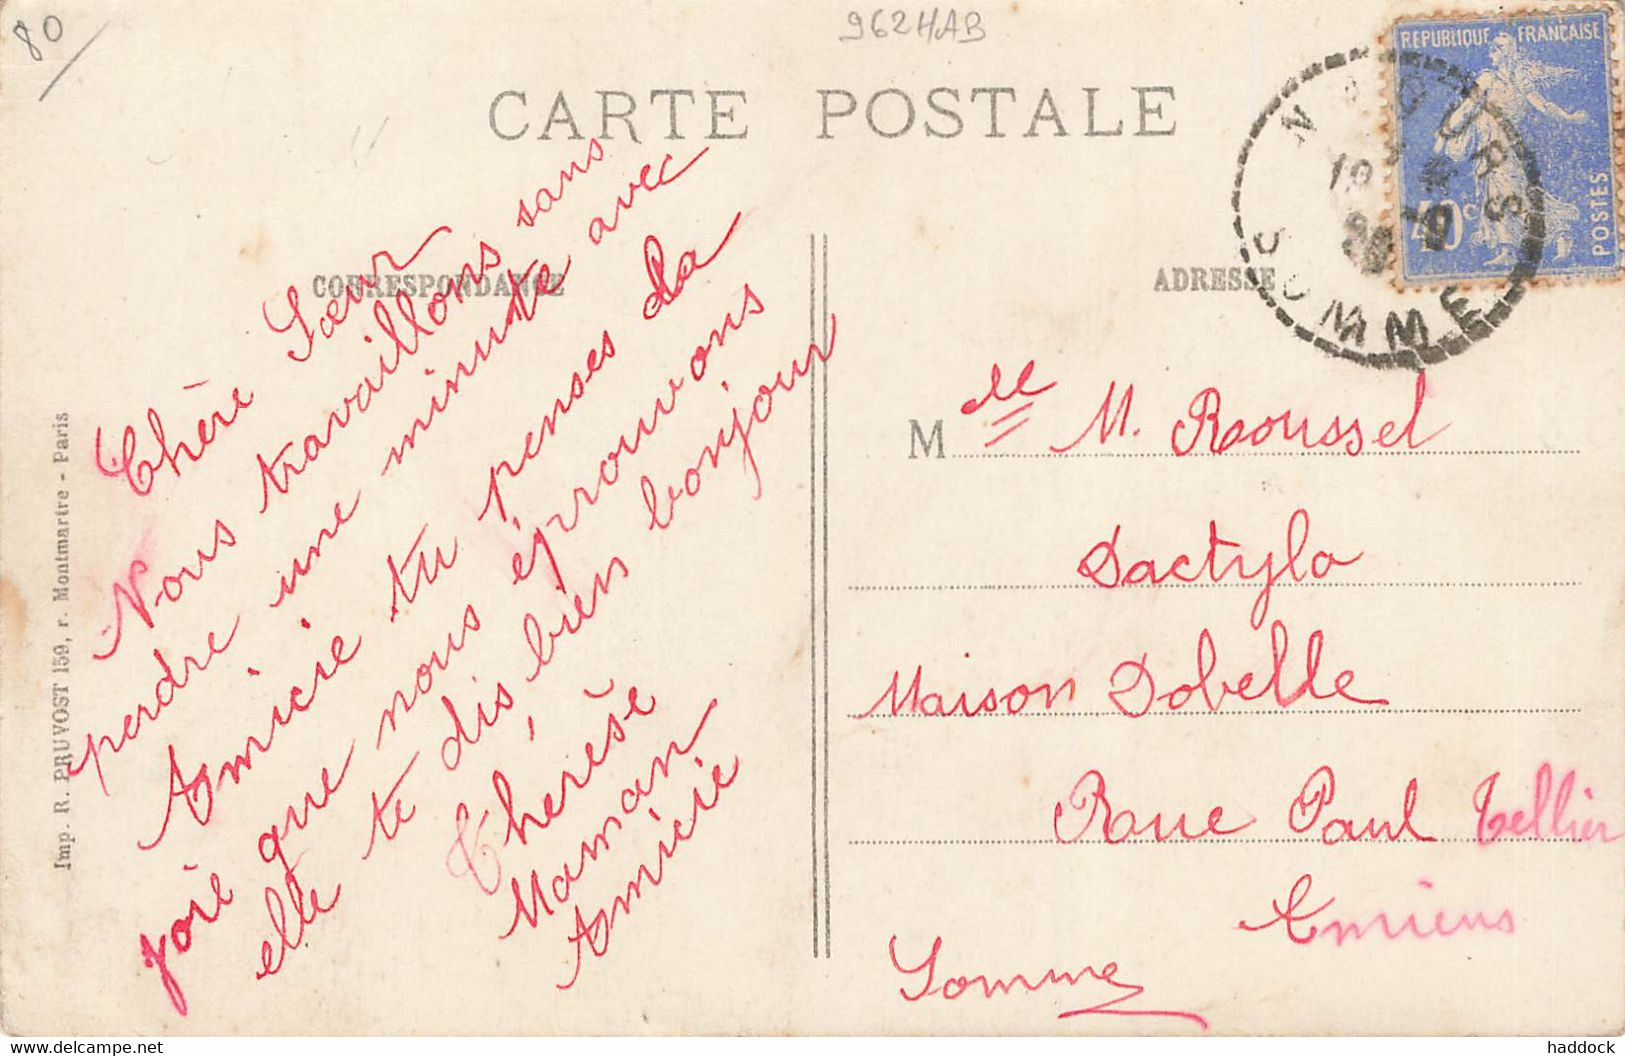 80
9624AB
CARTE POSTALE
REPUBLIQUE FRANCAISE
40c
POSTES
SOMME
CORRESPONDANCE
ADRESSE
Chère Sœur
Nous travaillons sans
perdre une minute avec
Amicie tu penses la
joie que nous éprouvons
elle te dis bien bonjour
Therèse
Maman
Amicie
Melle M. Roussel
Dactylo
Maison Dobelle
Rue Paul Tellier
Amiens
Somme
Imp. R. PRUVOST 159, r. Montmartre - Paris
www.delcampe.net
haddock